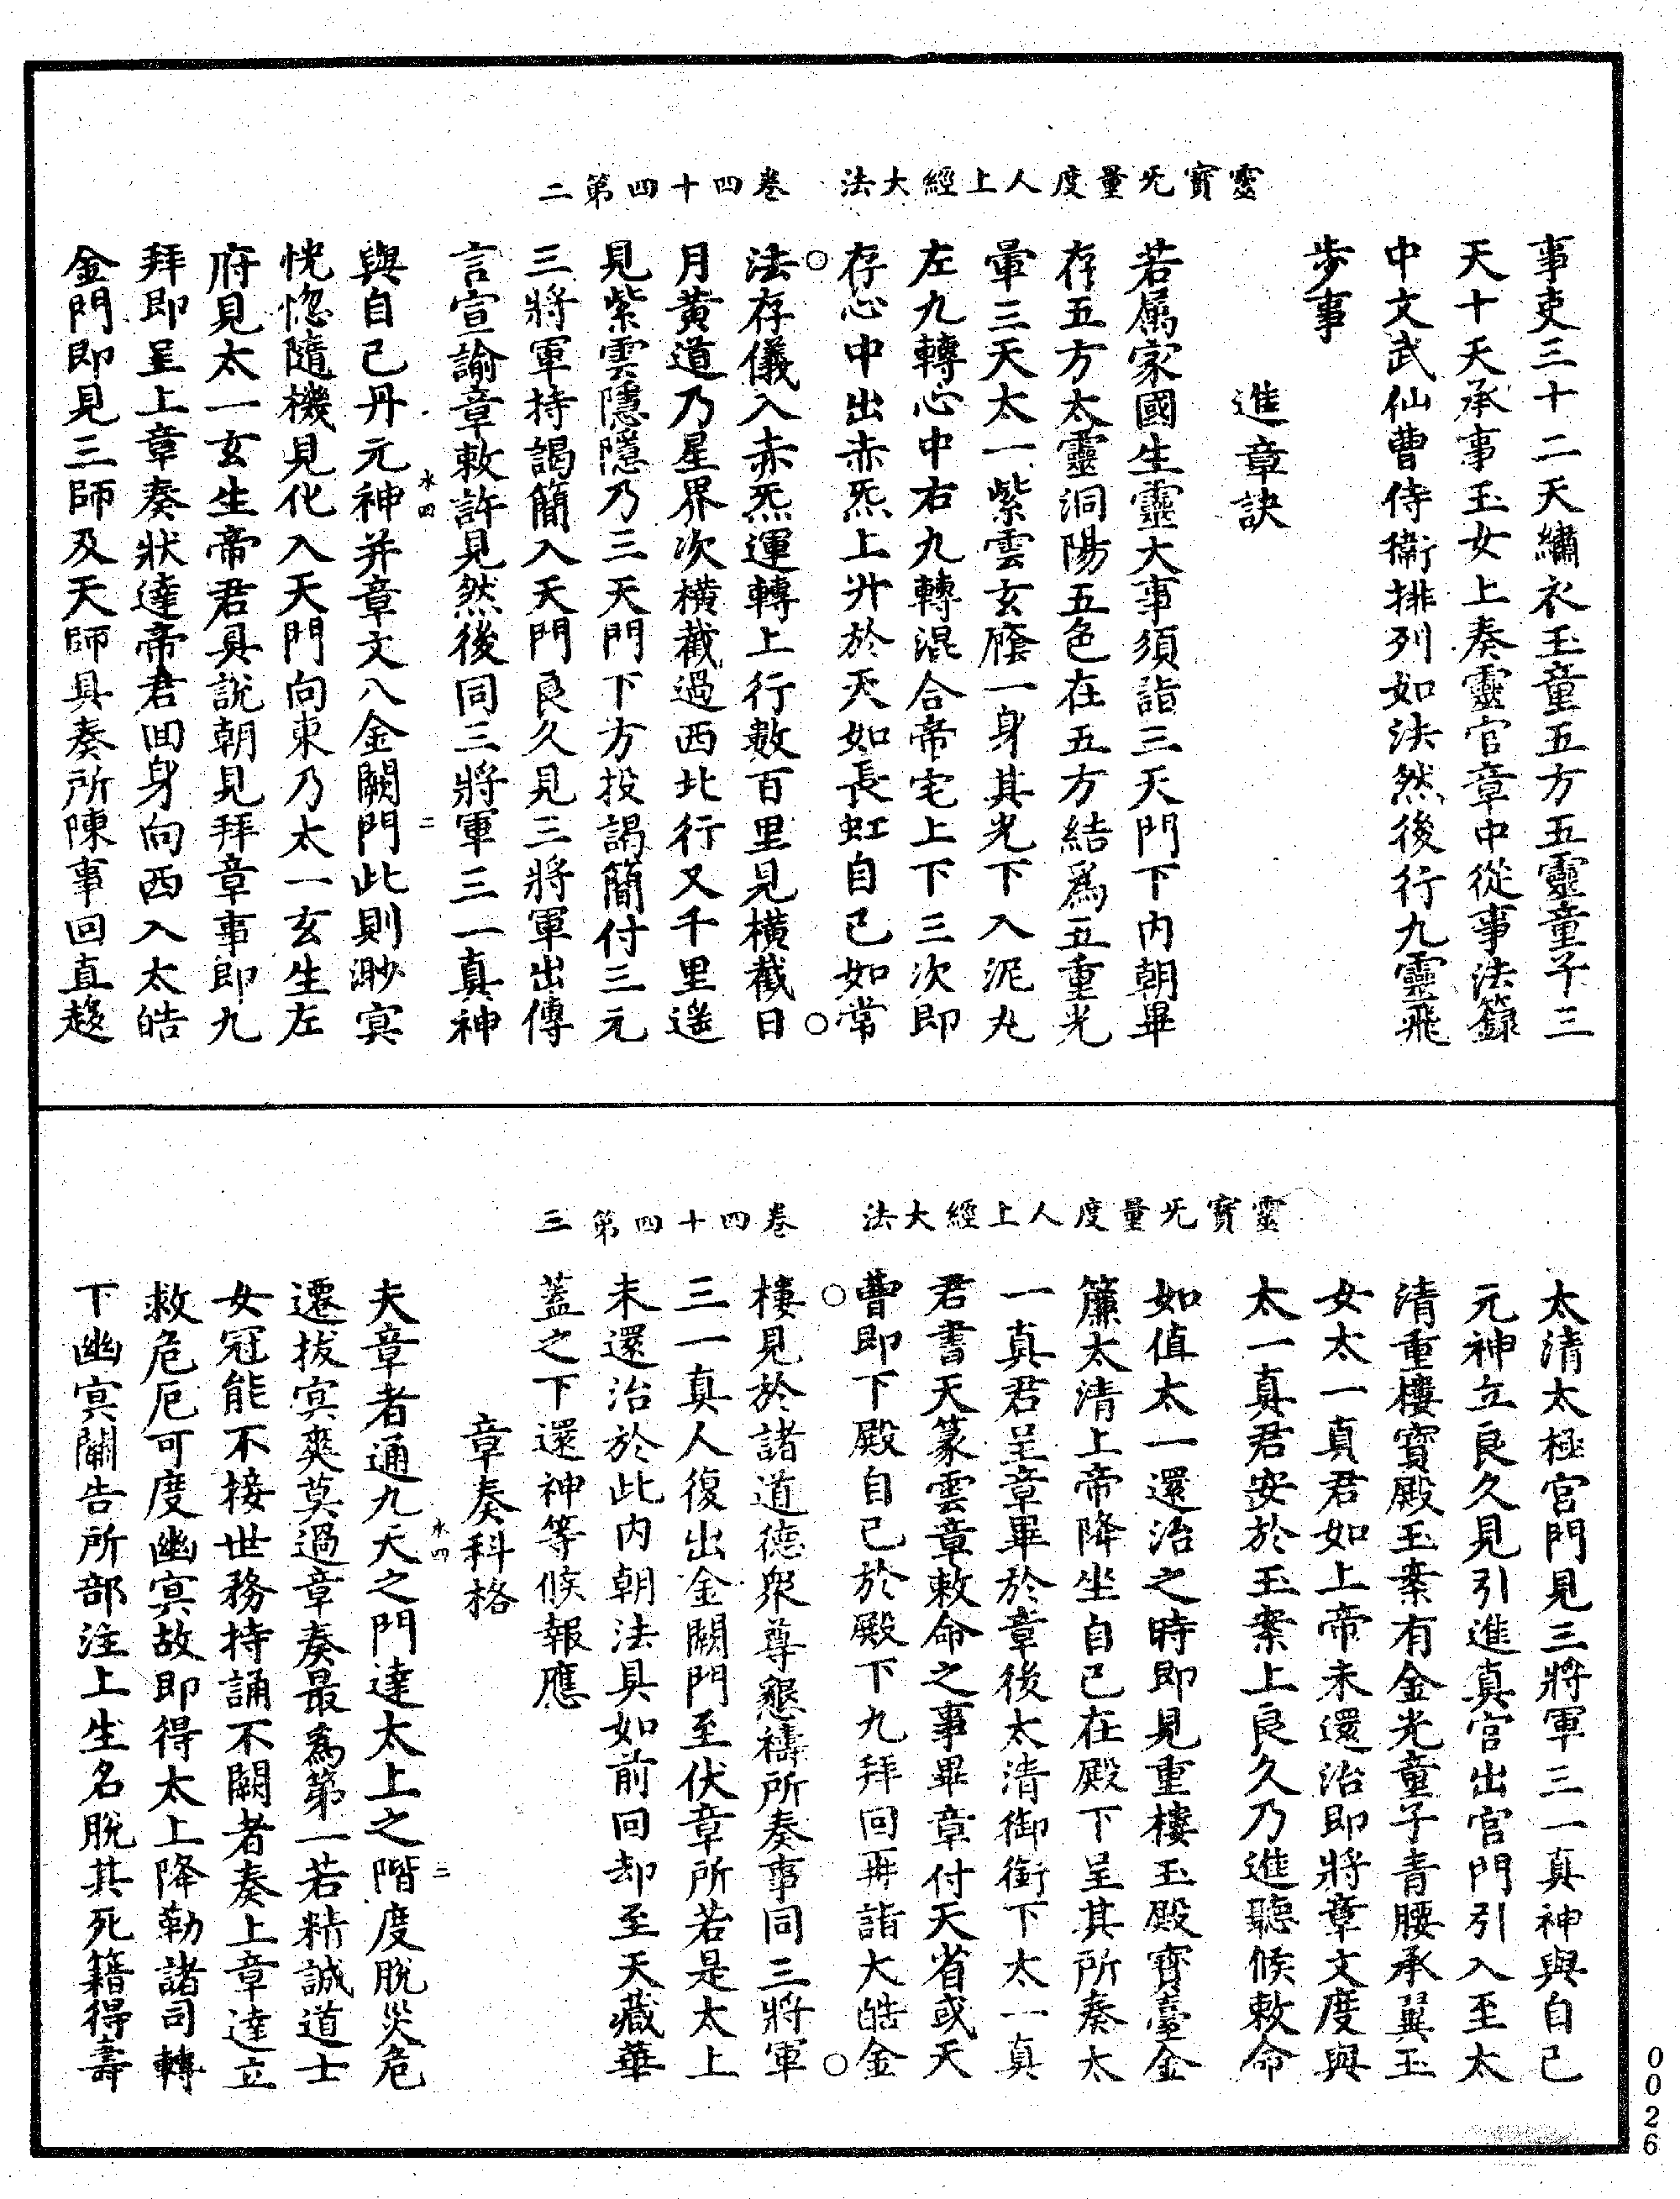 靈寶旡量度人上經大法　卷四十四第二
事吏三十二天繡衣玉童五方五靈童子三
天十天承事玉女上奏靈官章中從事法籙
中文武仙曹侍衛排列如法然後行九靈飛
步事
進章訣
若属家國生靈大事須詣三天門下内朝畢
存五方太靈洞陽五色在五方結爲五重光
暈三天太一紫雲玄廕一身其光下入泥丸
左九轉心中右九轉混合帝宅上下三次即
存心中出赤炁上升於天如長虹自己如常
○法存儀入赤炁運轉上行數百里見横截日○
月黄道乃星界次横截過西北行又千里遥
見紫雲隱隱乃三天門下方投謁簡付三元
三將軍持謁簡入天門良久見三將軍出傳
言宣諭章敕許見然後同三將軍三一真神
水四　二
與自己丹元神并章文入金闕門此則渺冥
恍惚隨機見化入天門向東乃太一玄生左
府見太一玄生帝君具說朝見拜章事即九
拜即呈上章奏狀達帝君回身向西入太皓
金門即見三師及天師具奏所陳事回直趍
靈寶旡量度人上經大法　卷四十四第三
太清太極宫門見三將軍三一真神與自己
元神立良久見引進真官出宫門引入至太
清重樓寶殿玉案有金光童子青腰承翼玉
女太一真君如上帝未還治即將章文度與
太一真君安於玉案上良久乃進聽候敕命
如值太一還治之時即見重樓玉殿寶臺金
簾太清上帝降坐自己在殿下呈其所奏太
一真君呈章畢於章後太清御銜下太一真
君書天篆雲章敕命之事畢章付天省或天
曹即下殿自己於殿下九拜回再詣大皓金
○樓見於諸道德衆尊懇禱所奏事同三將軍○
三一真人復出金闕門至伏章所若是太上
未還治於此内朝法具如前回却至天藏華
蓋之下還神等候報應
章奏科格
水四　三
夫章者通九天之門達太上之階度脫災危
遷拔冥爽莫過章奏最爲第一若精誠道士
女冠能不接世務持誦不闕者奏上章達立
救危厄可度幽冥故即得太上降勒諸司轉
下幽冥關告所部注上生名脫其死籍得壽
0026